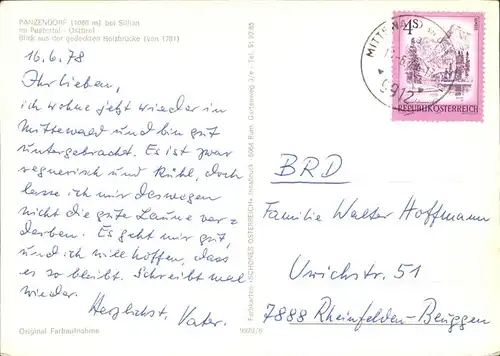 PANZENDORF (1088 m) bei Sillian
im Pustertal - Osttirol
Blick aus der gedeckten Holzbrücke (von 1781)
16.6.78
Ihr Lieben,
ich wohne jetzt wieder in
Mittewald und bin gut
untergebracht. Es ist zwar
regnerisch und kühl, doch
lasse ich mir deswegen
nicht die gute Laune ver=
derben. Es geht mir gut,
und ich will hoffen, dass
es so bleibt. Schreibt mal
wieder.
Herzlichst, Vater.
Original Farbaufnahme
1600/8
Farbkarten »SCHÖNES ÖSTERREICH« Innsbruck · 6064 Rum, Gartenweg
4S
REPUBLIK ÖSTERREICH
MITTEWALD
9912
BRD
Familie Walter Hoffmann
Urichstr. 51
7888 Rheinfelden-Beuggen